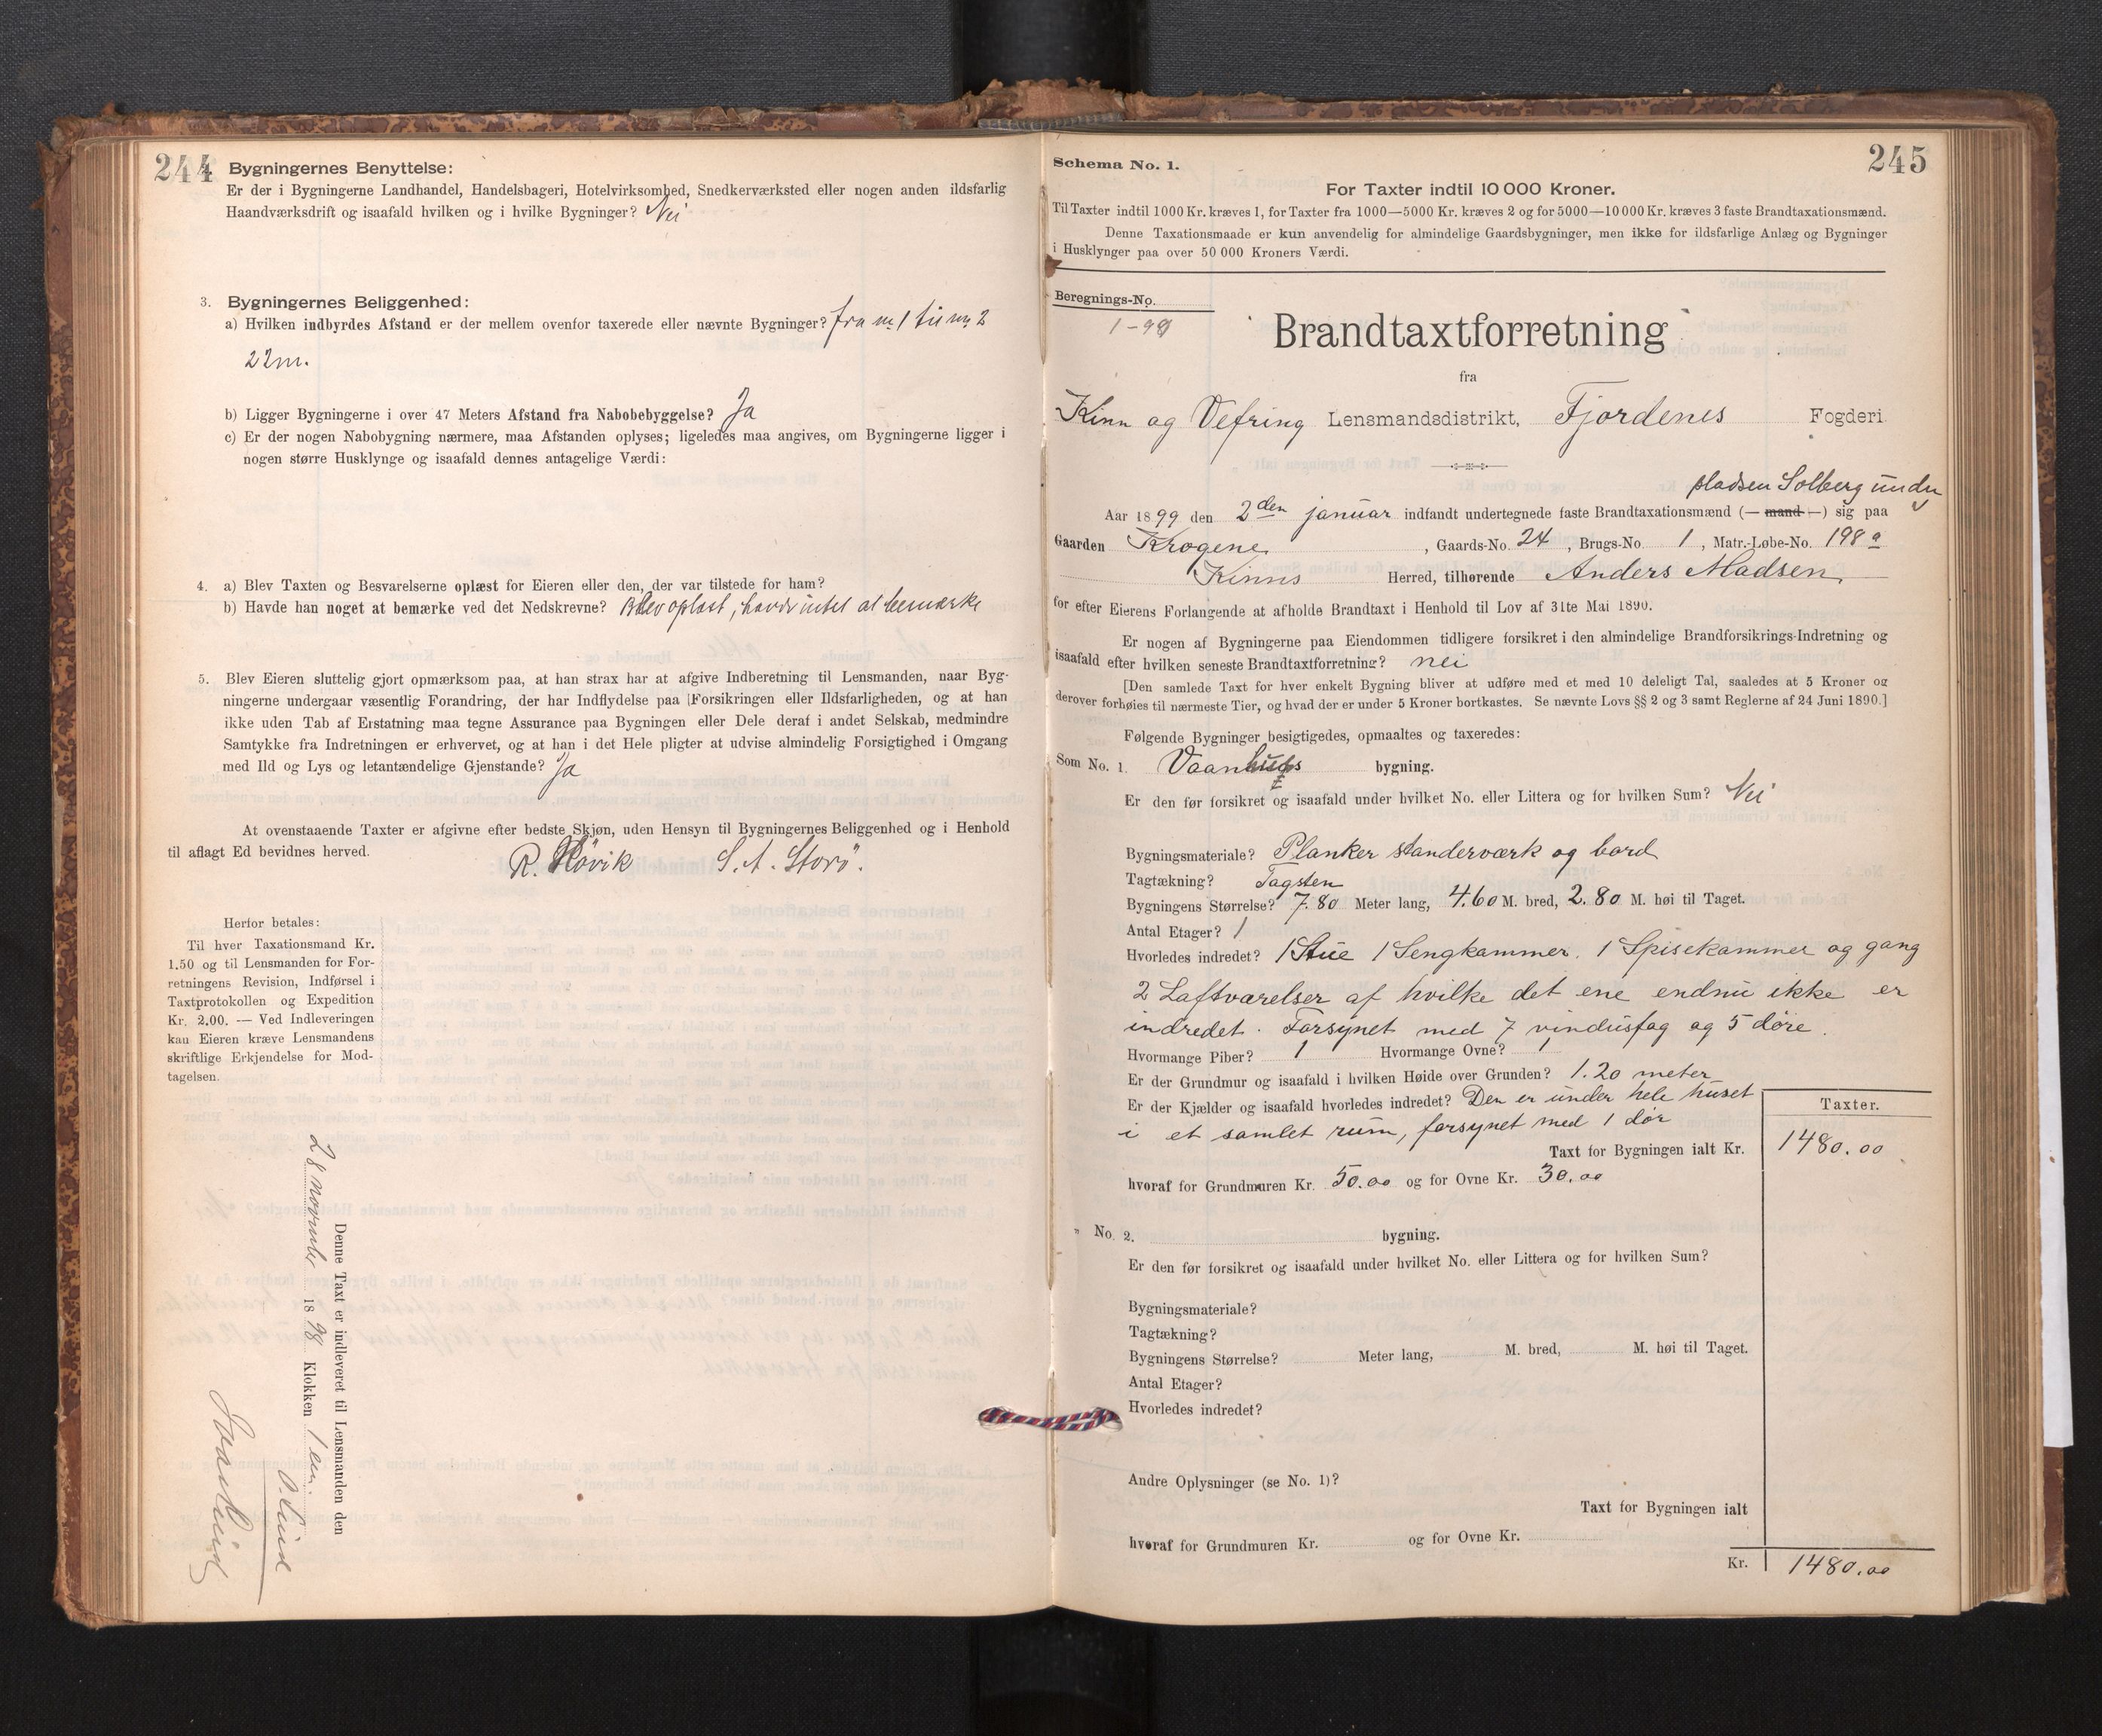 244
Bygningernes Benyttelse:
Er der i Bygningerne Landhandel, Handelsbageri, Hotelvirksomhed, Snedkerværksted eller nogen anden ildsfarlig
Haandværksdrift og isaafald hvilken og i hvilke Bygninger? Nei
3. Bygningernes Beliggenhed:
a) Hvilken indbyrdes Afstand er der mellem ovenfor taxerede eller nævnte Bygninger? fra nr 1 til nr 2
22m.
b) Ligger Bygningerne i over 47 Meters Afstand fra Nabobebyggelse? Ja
c) Er der nogen Nabobygning nærmere, maa Afstanden oplyses; ligeledes maa angives, om Bygningerne ligger i
nogen større Husklynge og isaafald dennes antagelige Værdi:
4. a) Blev Taxten og Besvarelserne oplæst for Eieren eller den, der var tilstede for ham?
b) Havde han noget at bemærke ved det Nedskrevne? Blev oplæst, havde intet at bemærke
5. Blev Eieren sluttelig gjort opmærksom paa, at han strax har at afgive Indberetning til Lensmanden, naar Byg-
ningerne undergaar væsentlig Forandring, der har Indflydelse paa Forsikringen eller Ildsfarligheden, og at han
ikke uden Tab af Erstatning maa tegne Assurance paa Bygningen eller Dele deraf i andet Selskab, medmindre
Samtykke fra Indretningen er erhvervet, og at han i det Hele pligter at udvise almindelig Forsigtighed i Omgang
med Ild og Lys og letantændelige Gjenstande? Ja
At ovenstaaende Taxter er afgivne efter bedste Skjøn, uden Hensyn til Bygningernes Beliggenhed og i Henhold
til aflagt Ed bevidnes herved.
R. Høvik S. A. Storö.
Herfor betales:
Til hver Taxationsmand Kr.
1.50 og til Lensmanden for For-
retningens Revision, Indførsel i
Taxtprotokollen og Expedition
Kr. 2.00. — Ved Indleveringen
kan Eieren kræve Lensmandens
skriftlige Erkjendelse for Mod-
tagelsen.
Denne Taxt er indleveret til Lensmanden den
28 november 1898 Klokken 1 em
245
Schema No. 1.
For Taxter indtil 10 000 Kroner.
Til Taxter indtil 1000 Kr. kræves 1, for Taxter fra 1000—5000 Kr. kræves 2 og for 5000—10 000 Kr. kræves 3 faste Brandtaxationsmænd.
Denne Taxationsmaade er kun anvendelig for almindelige Gaardsbygninger, men ikke for ildsfarlige Anlæg og Bygninger
i Husklynger paa over 50 000 Kroners Værdi.
Beregnings-No.
1-99
Brandtaxtforretning
fra
Kinn og Vefring Lensmandsdistrikt, Fjordenes Fogderi
pladsen Solberg under
Aar 1899 den 2den januar indfandt undertegnede faste Brandtaxationsmænd (— mand —) sig paa
Gaarden Krogene, Gaards-No. 24, Brugs-No. 1, Matr.-Løbe-No. 198 a
Kinns Herred, tilhørende Anders Madsen,
for efter Eierens Forlangende at afholde Brandtaxt i Henhold til Lov af 31te Mai 1890.
Er nogen af Bygningerne paa Eiendommen tidligere forsikret i den almindelige Brandforsikrings-Indretning og
isaafald efter hvilken seneste Brandtaxtforretning? nei
[Den samlede Taxt for hver enkelt Bygning bliver at udføre med et med 10 deleligt Tal, saaledes at 5 Kroner og
derover forhøies til nærmeste Tier, og hvad der er under 5 Kroner bortkastes. Se nævnte Lovs §§ 2 og 3 samt Reglerne af 24 Juni 1890.]
Følgende Bygninger besigtigedes, opmaaltes og taxeredes:
Som No. 1. Vaanhus bygning.
Er den før forsikret og isaafald under hvilket No. eller Littera og for hvilken Sum? Nei
Bygningsmateriale? Planker standerværk og bord
Tagtækning? Tagsten
Bygningens Størrelse? 7.80 Meter lang, 4.60 M. bred, 2.80 M. høi til Taget.
Antal Etager? 1
Hvorledes indredet? 1 Stue 1 Sengkammer. 1 Spisekammer og gang
2 Laftværelser af hvilke det ene endnu ikke er
indredet. Forsynet med 7 vindusfag og 5 døre.
Hvormange Piber? 1 Hvormange Ovne? 1
Er der Grundmur og isaafald i hvilken Høide over Grunden? 1.20 meter
Er der Kjælder og isaafald hvorledes indredet? Den er under hele huset
i et samlet rum, forsynet med 1 dør
Taxter.
Taxt for Bygningen ialt Kr. 1480.00
hvoraf for Grundmuren Kr. 50.00 og for Ovne Kr. 30.00
" No. 2. bygning.
Er den før forsikret og isaafald under hvilket No. eller Littera og for hvilken Sum?
Bygningsmateriale?
Tagtækning?
Bygningens Størrelse? Meter lang, M. bred, M. høi til Taget.
Antal Etager?
Hvorledes indredet?
Andre Oplysninger (se No. 1)?
Taxt for Bygningen ialt
hvoraf for Grundmuren Kr. og for Ovne Kr.
Kr. 1480.00